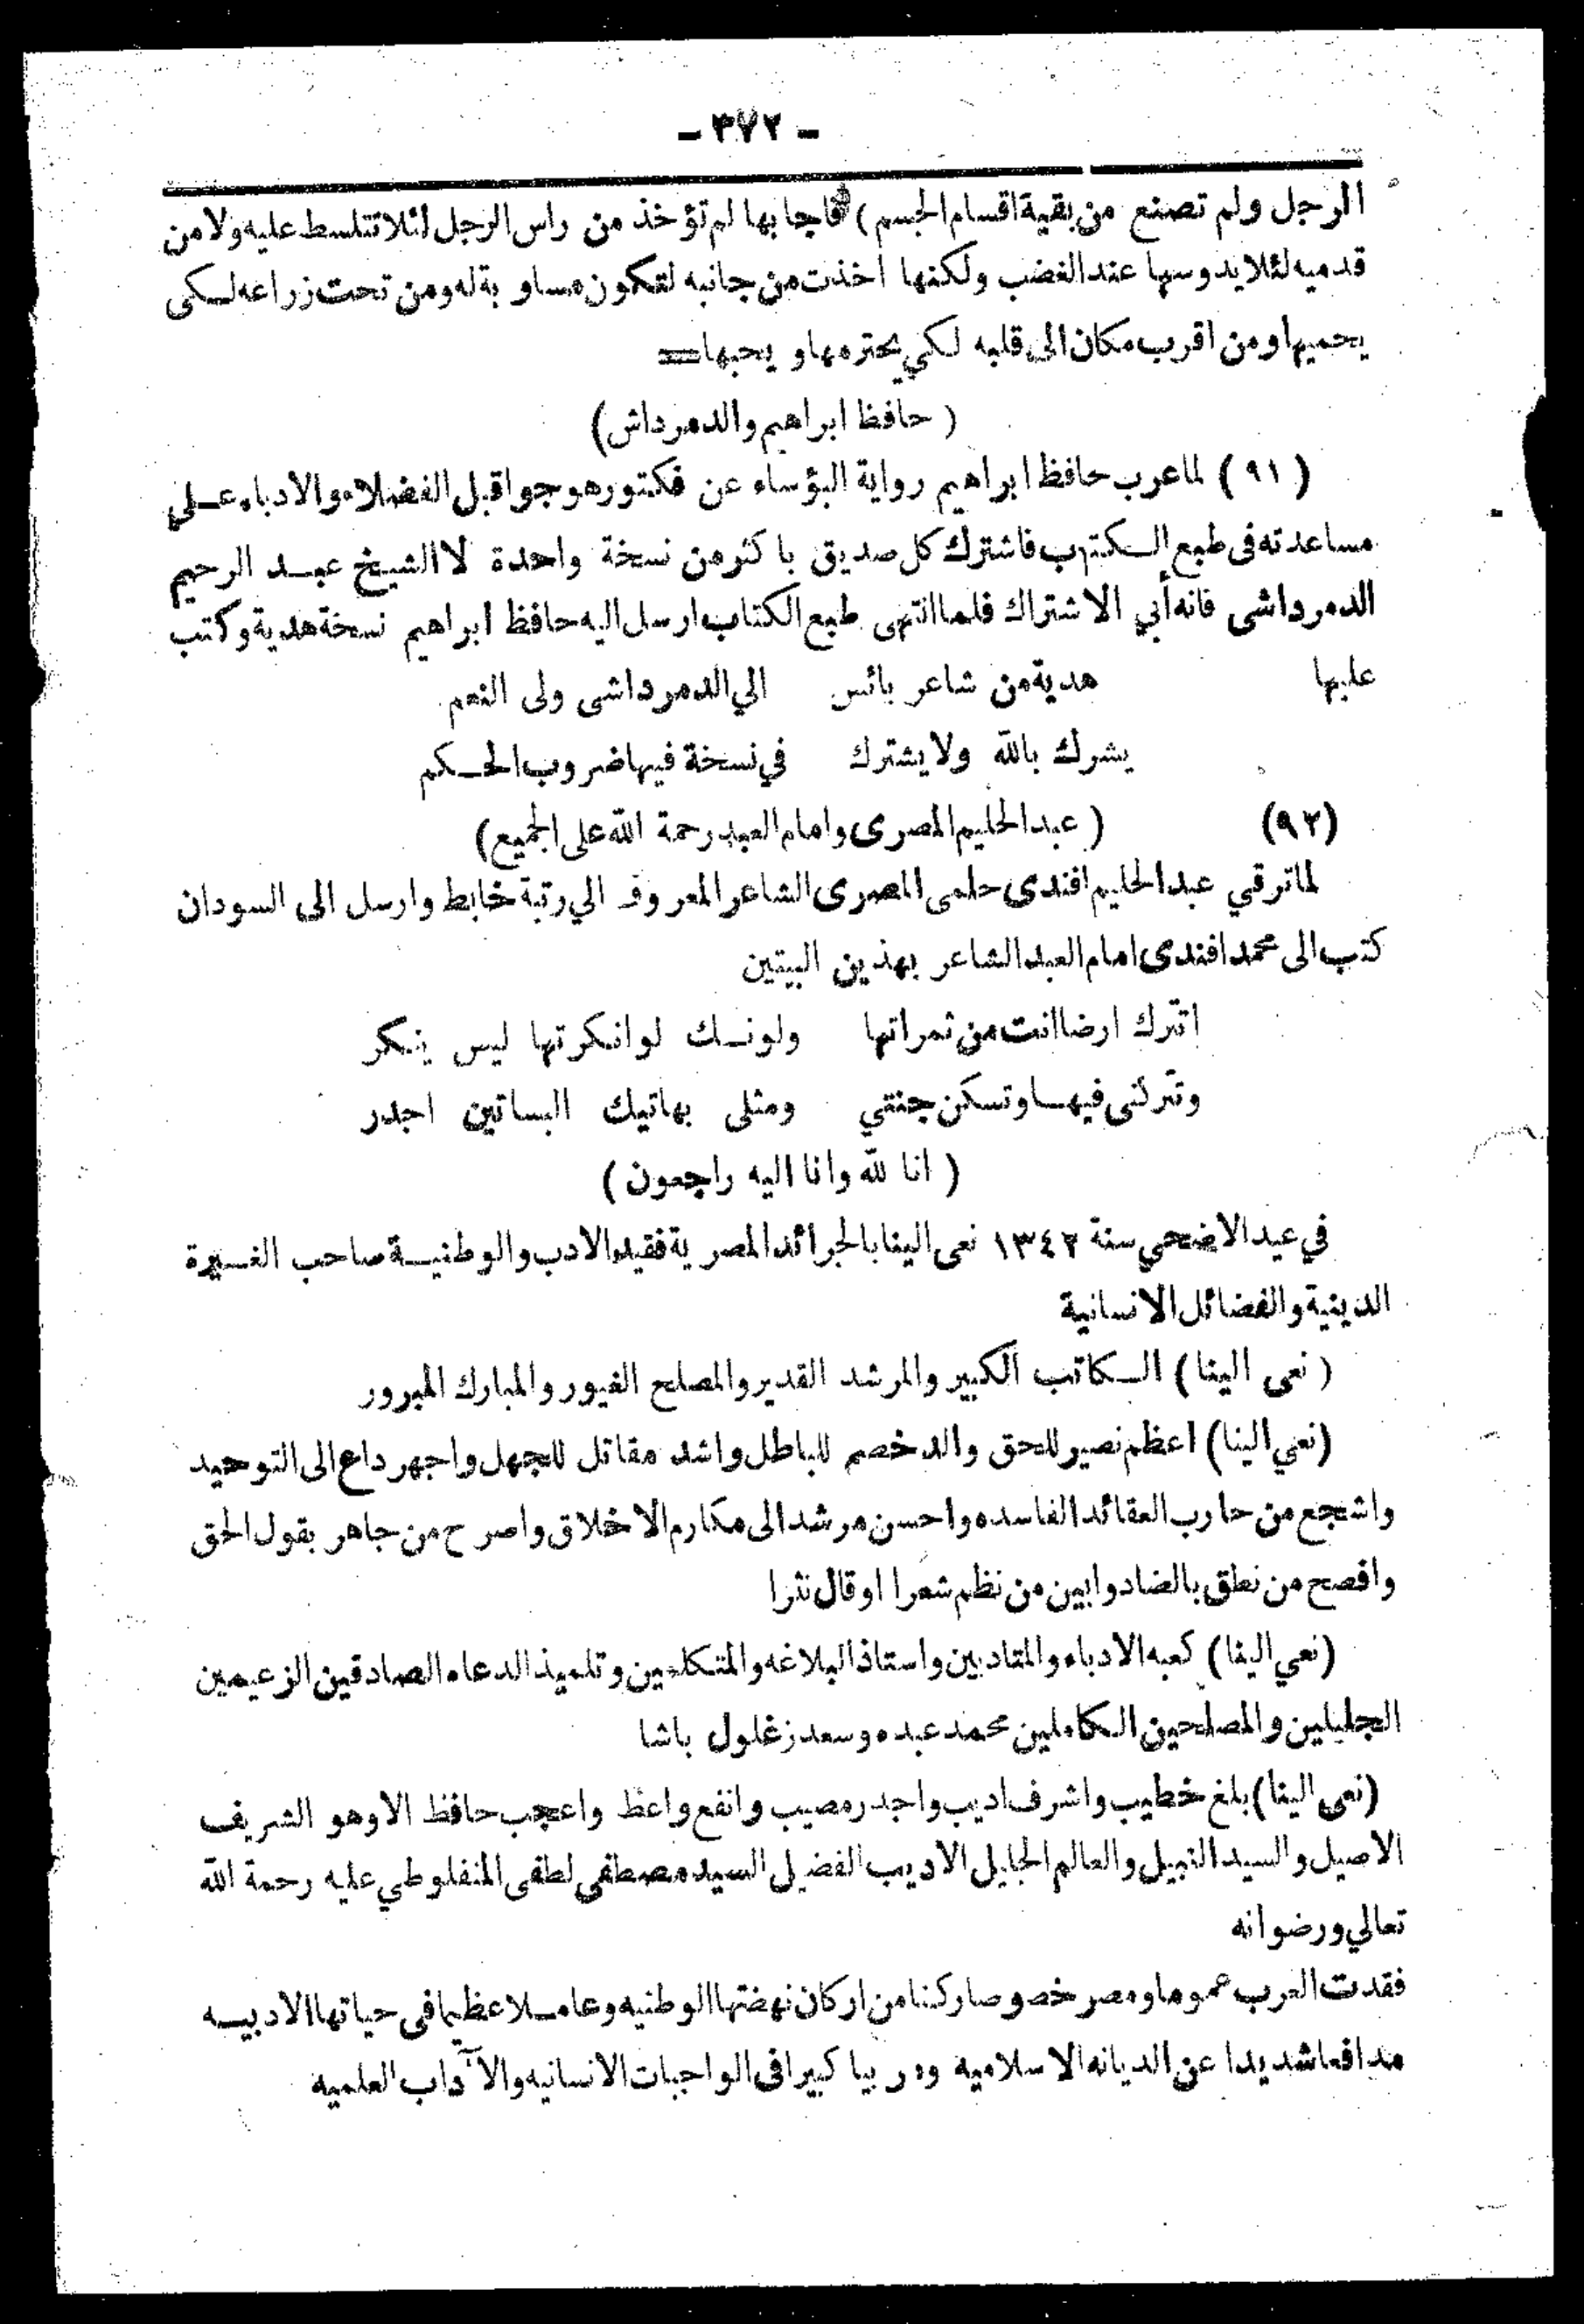 - ٣٧٢ -
الرجل ولم تصنع من بقية اقسام الجسم) فاجابها لم تؤخذ من راس الرجل لئلا تتلسط عليه ولا من
قدميه لئلا يدوسها عند الغضب ولكنها اخذت من جانبه لتكون مساوية له ومن تحت زراعه لكى
يحميها ومن اقرب مكان الى قلبه لكي يحترمها ويحبها
(حافظ ابراهيم والدمرداش)
(٩١) لما عرب حافظ ابراهيم رواية البؤساء عن فكتور هوجو اقبل الفضلاء والادباء على
مساعدته فى طبع الكتب فاشترك كل صديق باكثر من نسخة واحدة لا الشيخ عبد الرحيم
الدمرداشى فانه أبي الاشتراك فلما انتهى طبع الكتاب ارسل اليه حافظ ابراهيم نسخة هدية وكتب
عليها هدية من شاعر بائس الي الدمرداشى ولى النعم
يشرك بالله ولا يشترك في نسخة فيها ضروب الحكم
(٩٢) (عبد الحليم المصرى وامام العبد رحمة الله على الجميع)
لما ترقي عبد الحليم افندى حلمى المصرى الشاعر المعروف الي رتبة ضابط وارسل الى السودان
كتب الى محمد افندى امام العبد الشاعر بهذين البيتين
اتترك ارضا انت من ثمراتها ولونك لو انكرتها ليس ينكر
وتتركنى فيها وتسكن جنتي ومثلى بهاتيك البساتين اجدر
(انا لله وانا اليه راجعون)
في عيد الاضحي سنة ١٣٤٢ نعى الينا بالجرائد المصرية فقيد الادب والوطنية صاحب الغيرة
الدينية والفضائل الانسانية
(نعى الينا) الكاتب الكبير والمرشد القدير والمصلح الغيور والمبارك المبرور
(نعي الينا) اعظم نصير للحق والد خصم للباطل واشد مقاتل للجهل واجهر داع الى التوحيد
واشجع من حارب العقائد الفاسده واحسن مرشد الى مكارم الاخلاق واصرح من جاهر بقول الحق
وافصح من نطق بالضاد وابين من نظم شعرا او قال نثرا
(نعي الينا) كعبه الادباء والمتادبين واستاذ البلاغه والمتكلمين وتلميذ الدعاه الصادقين الزعيمين
الجليلين والمصلحين الكاملين محمد عبده وسعد زغلول باشا
(نعى الينا) بلغ خطيب واشرف اديب واجدر مصيب وانفع واعظ واعجب حافظ الا وهو الشريف
الاصيل والسيد النبيل والعالم الجليل الاديب الفضيل السيد مصطفى لطفى المنفلوطي عليه رحمة الله
تعالي ورضوانه
فقدت العرب عموما ومصر خصوصا ركنا من اركان نهضتها الوطنيه وعاملا عظيما فى حياتها الادبيه
مدافعا شديدا عن الديانه الاسلاميه ومربيا كبيرا فى الواجبات الانسانيه والآداب العلميه